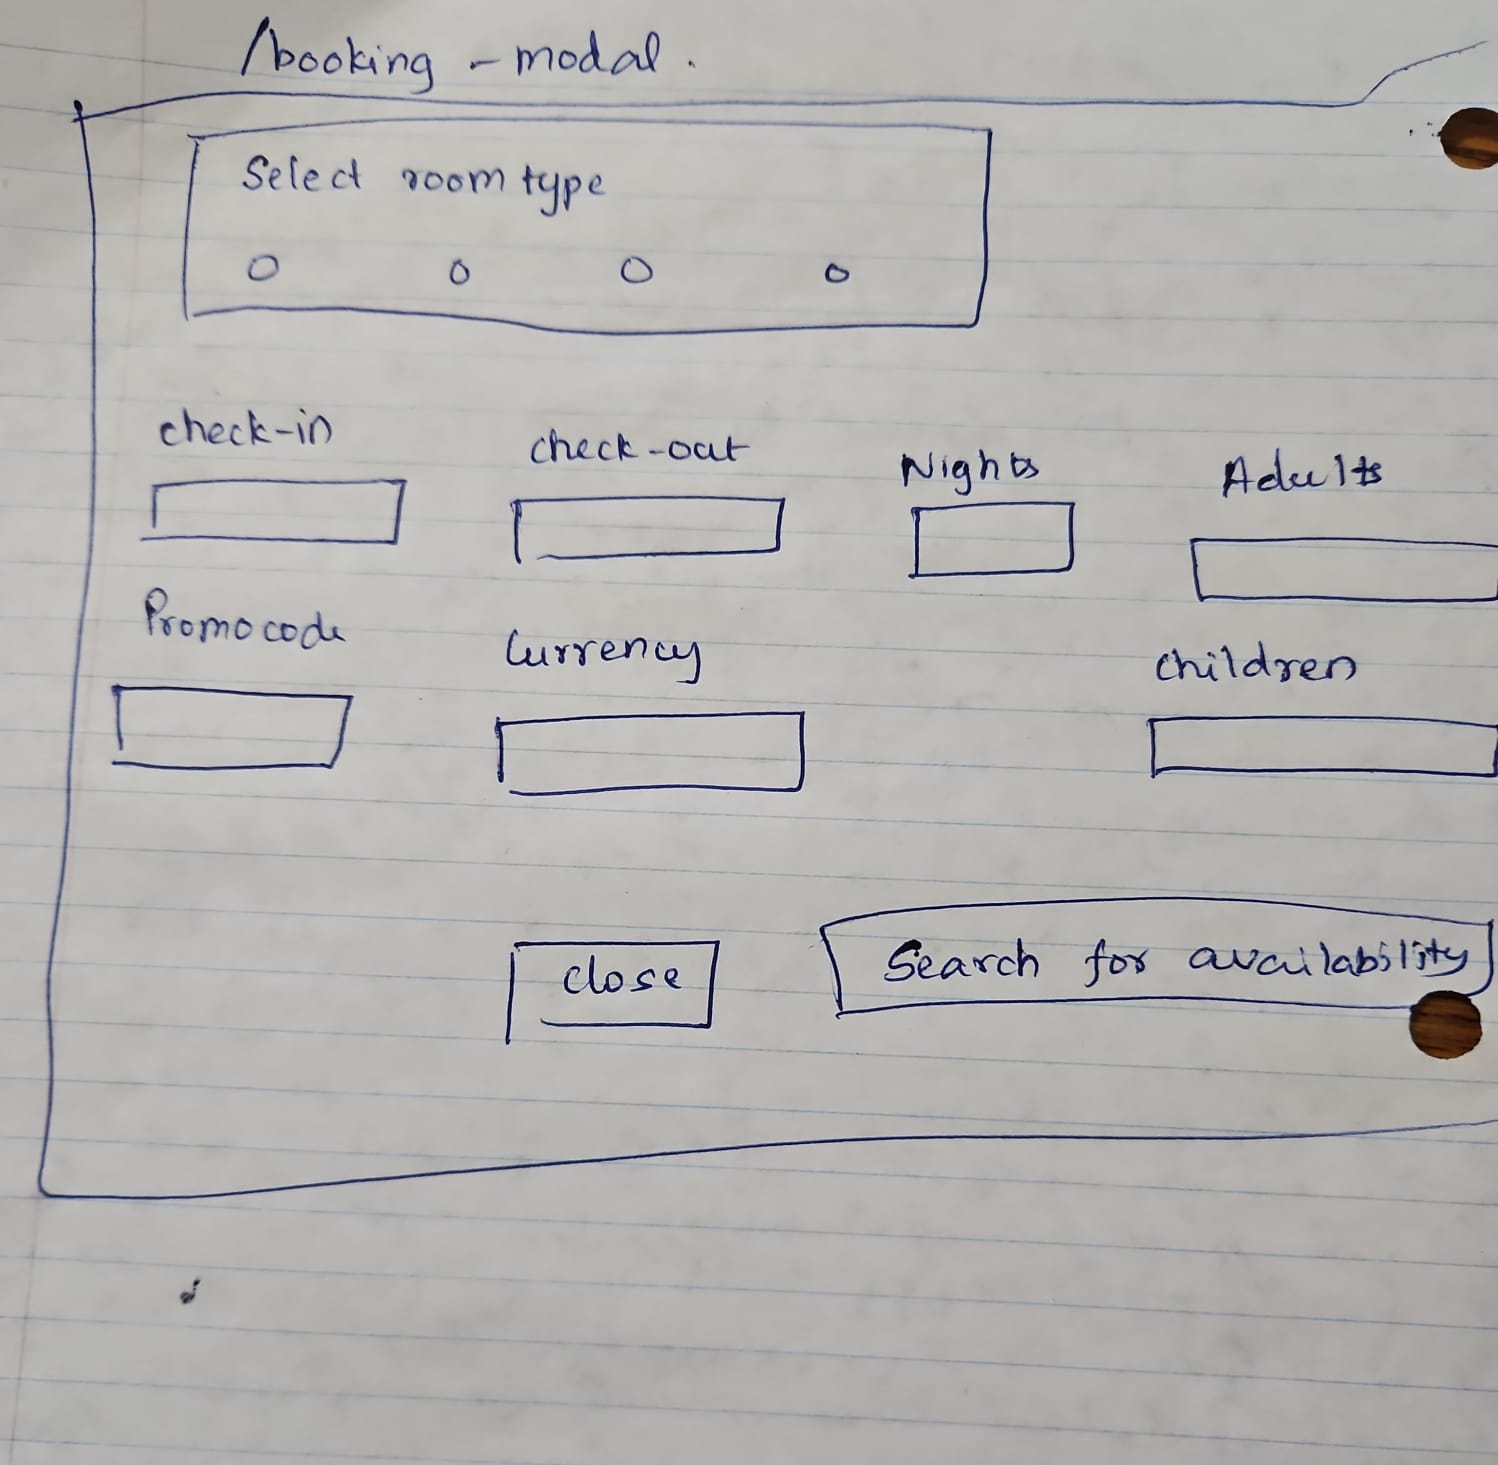 /booking - modal.
Select room type
check-in check-out Nights Adults
Promocode Currency children
close Search for availability